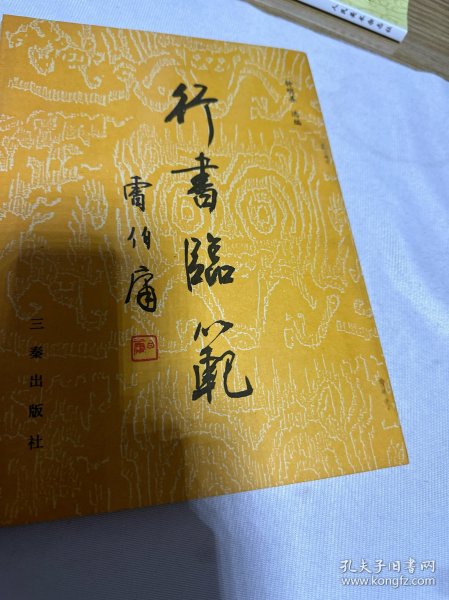 人民美术出版社
行書臨範
雷伯庸
三秦出版社
孔夫子旧书网
www.kongfz.com